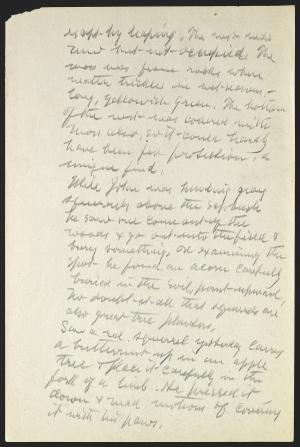 except by leaping. The nest was
new but not occupied. The
moss was from rocks where
water trickles in wet seasons -
long, yellowish green. The bottom
of the nest was covered with
moss also, so it could hardly
have been for protection; a
unique find.
While John was hunting gray
squirrels above the sap bush
he saw one come out of the
woods & go out into the field &
bury something. On examining the
spot he found an acorn carefully
buried in the soil, point upward.
No doubt at all that squirrels are
also great tree planters.
Saw a red squirrel yesterday carry
a butternut up in an apple
tree & place it carefully in the
fork of a limb. He pressed it
down & made motions of covering
it with his paws.